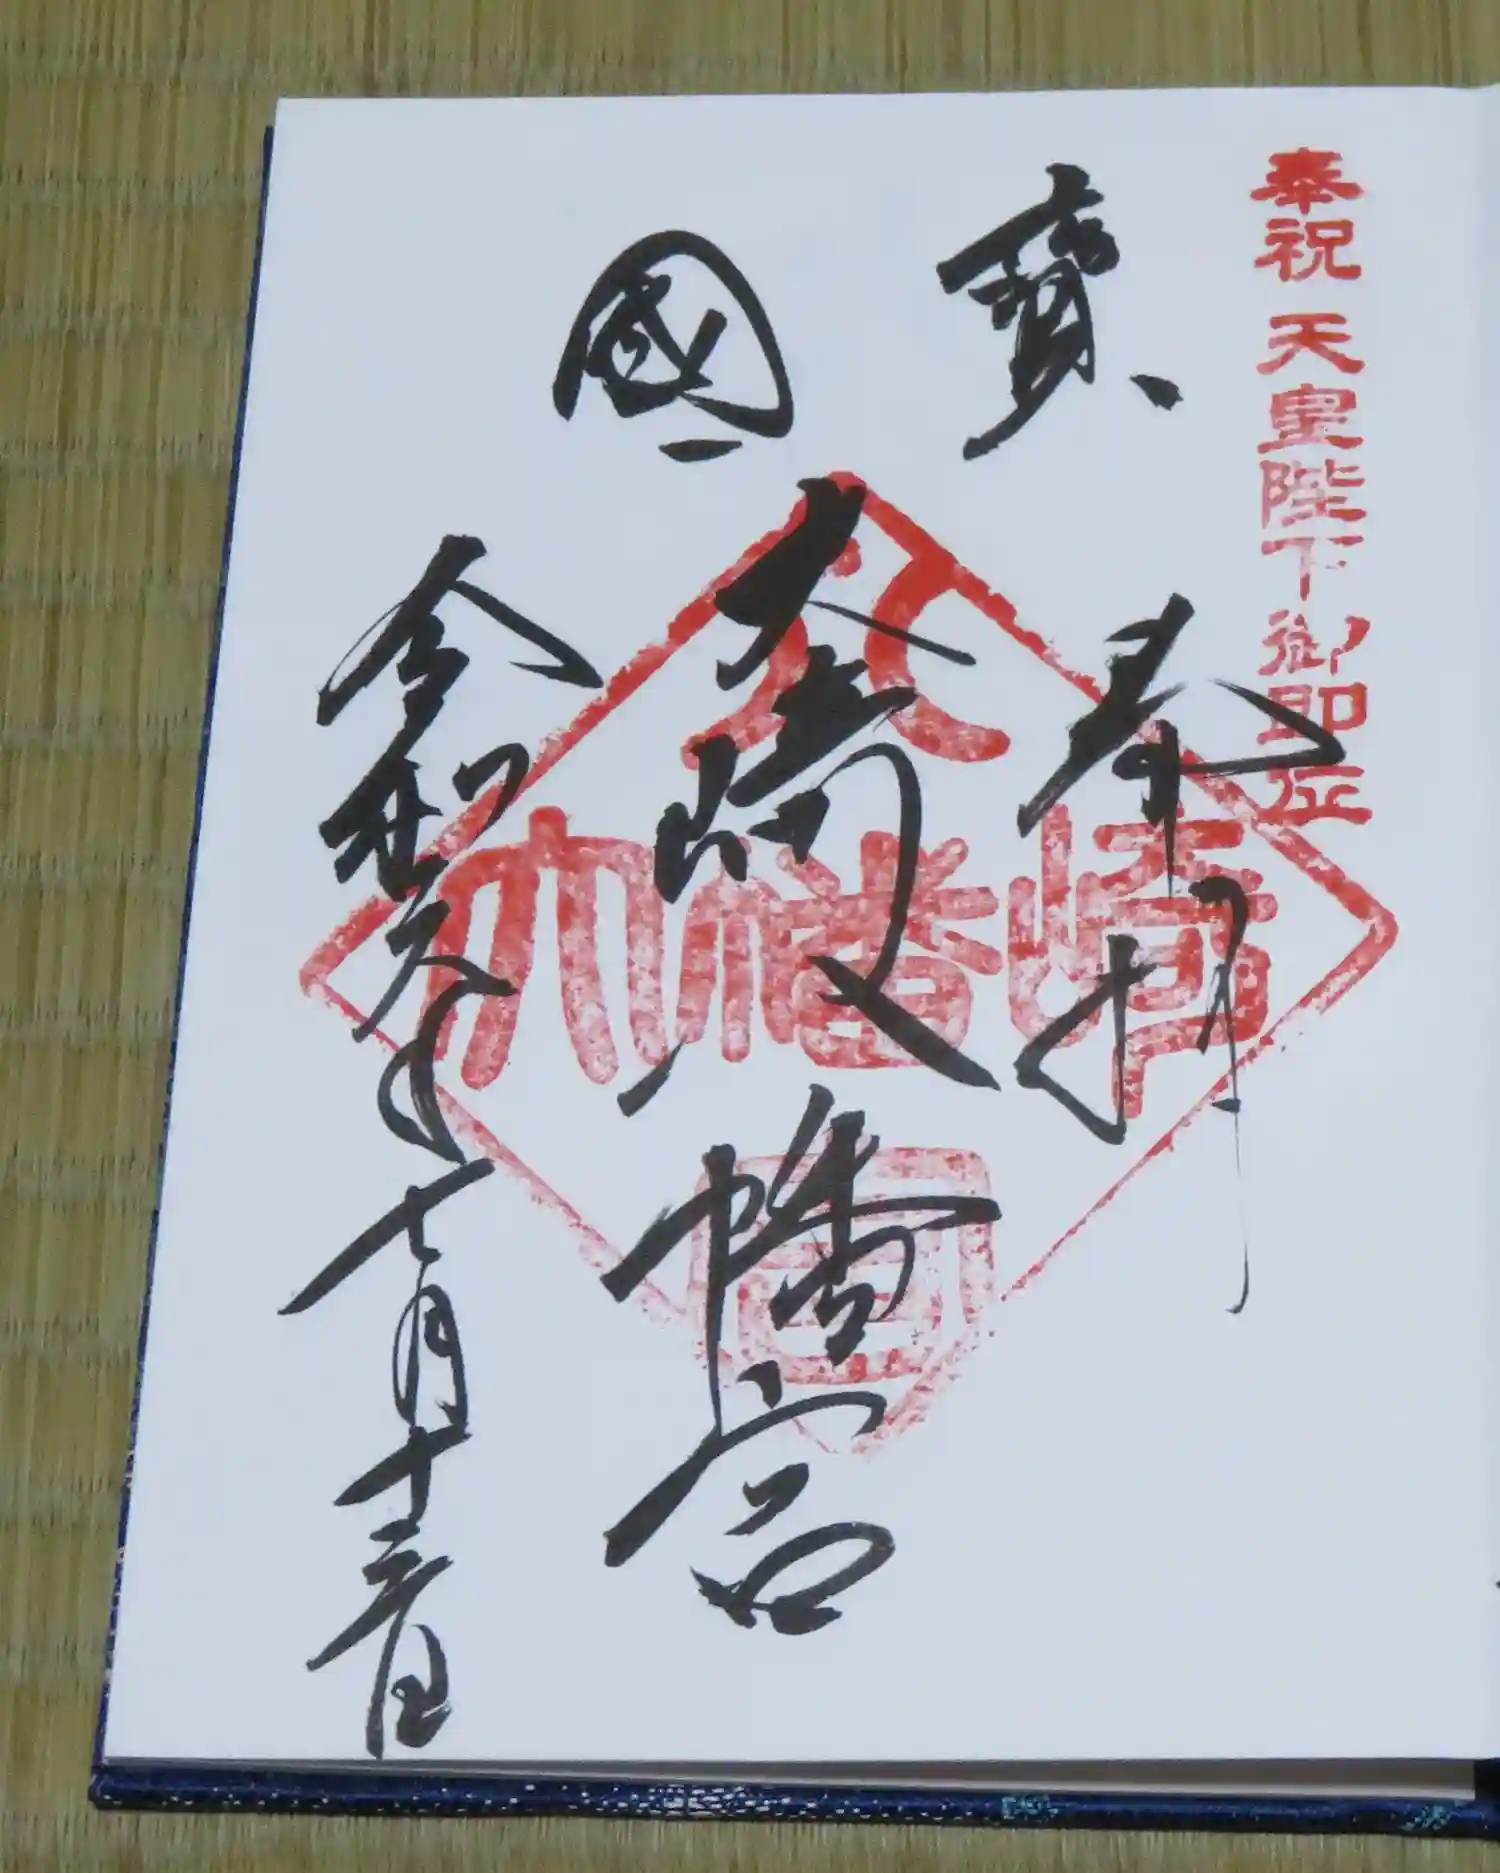 奉祝 天皇陛下御即位
國寶
奉拝
大崎八幡宮
令和元年七月十三日
八
大幡崎
宮